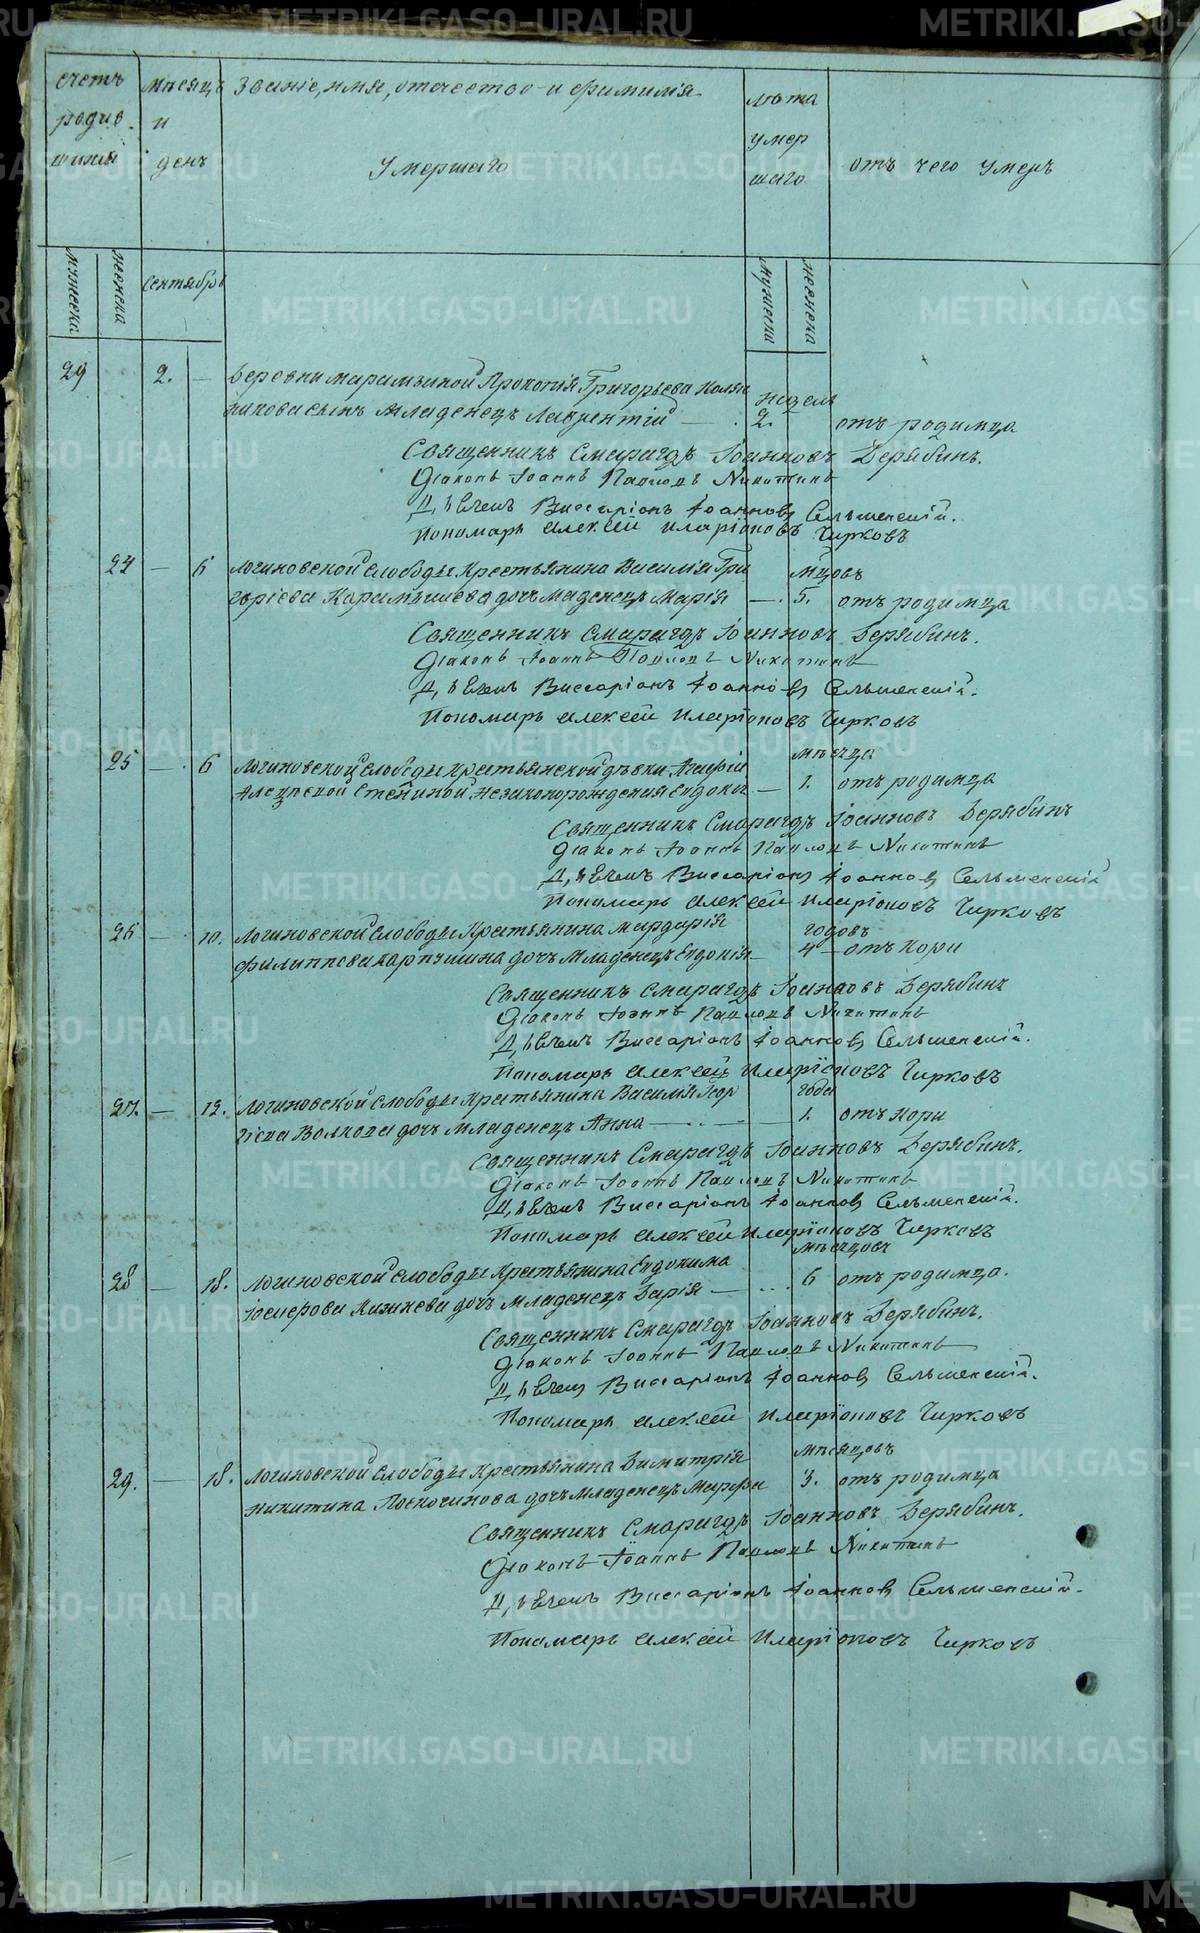 счетъ мѣсяцъ Званіе, имя, отечество и фимилія лѣта
родив и умер
шихся день Умершаго шаго отъ чего умеръ
мужеска женска сентябрь мужеска женска
29 2. — Деревни Марамзиной Прокопія Григорьева Коля недель
никова сынъ младенецъ Лаврентій — 2. отъ родимца
Священникъ Смарагдъ Іоанновъ Дерябинъ.
Діаконъ Іоаннъ Павловъ Никитинъ
Дьячекъ Виссаріонъ Іоанновъ Сельменскій.
Пономарь Алексей Иларіоновъ Чирковъ
24 — 6 Логиновской слободы Крестьянина Василія Гри мцовъ
горіева Карамышева дочь младенецъ Марія — 5. отъ родимца
Священникъ Смарагдъ Іоанновъ Дерябинъ.
Діаконъ Іоаннъ Павловъ Никитинъ
Дьячекъ Виссаріонъ Іоанновъ Сельменскій.
Пономарь Алексей Иларіоновъ Чирковъ
25 — 6 Логиновской слободы крестьянской дѣвки мѣсяца
незаконорожденная Евдокія — 1. отъ родимца
Священникъ Смарагдъ Іоанновъ Дерябинъ
Діаконъ Іоаннъ Павловъ Никитинъ
Дьячекъ Виссаріонъ Іоанновъ Сельменскій
Пономарь Алексей Иларіоновъ Чирковъ
26 — 10. Логиновской слободы Крестьянина Мардарія годовъ
Филиппова дочь младенецъ Евдокія — 4 — отъ кори
Священникъ Смарагдъ Іоанновъ Дерябинъ
Діаконъ Іоаннъ Павловъ Никитинъ
Дьячекъ Виссаріонъ Іоанновъ Сельменскій.
Пономарь Алексей Иларіоновъ Чирковъ
27. — 12. Логиновской слободы Крестьянина Василія Геор года
гіева Волкова дочь младенецъ Анна — 1. отъ кори
Священникъ Смарагдъ Іоанновъ Дерябинъ.
Діаконъ Іоаннъ Павловъ Никитинъ
Дьячекъ Виссаріонъ Іоанновъ Сельменскій.
Пономарь Алексей Иларіоновъ Чирковъ
28 — 18. Логиновской слободы Крестьянина Евдокима мѣсяцовъ
дочь младенецъ Дарія — 6 отъ родимца.
Священникъ Смарагдъ Іоанновъ Дерябинъ.
Діаконъ Іоаннъ Павловъ Никитинъ
Дьячекъ Виссаріонъ Іоанновъ Сельменскій.
Пономарь Алексей Иларіоновъ Чирковъ
29. — 18. Логиновской слободы Крестьянина Димитрія мѣсяцовъ
Никитина Поскочинова дочь младенецъ Марфа 3. отъ родимца
Священникъ Смарагдъ Іоанновъ Дерябинъ.
Діаконъ Іоаннъ Павловъ Никитинъ
Дьячекъ Виссаріонъ Іоанновъ Сельменскій.
Пономарь Алексей Иларіоновъ Чирковъ
METRIKI.GASO-URAL.RU